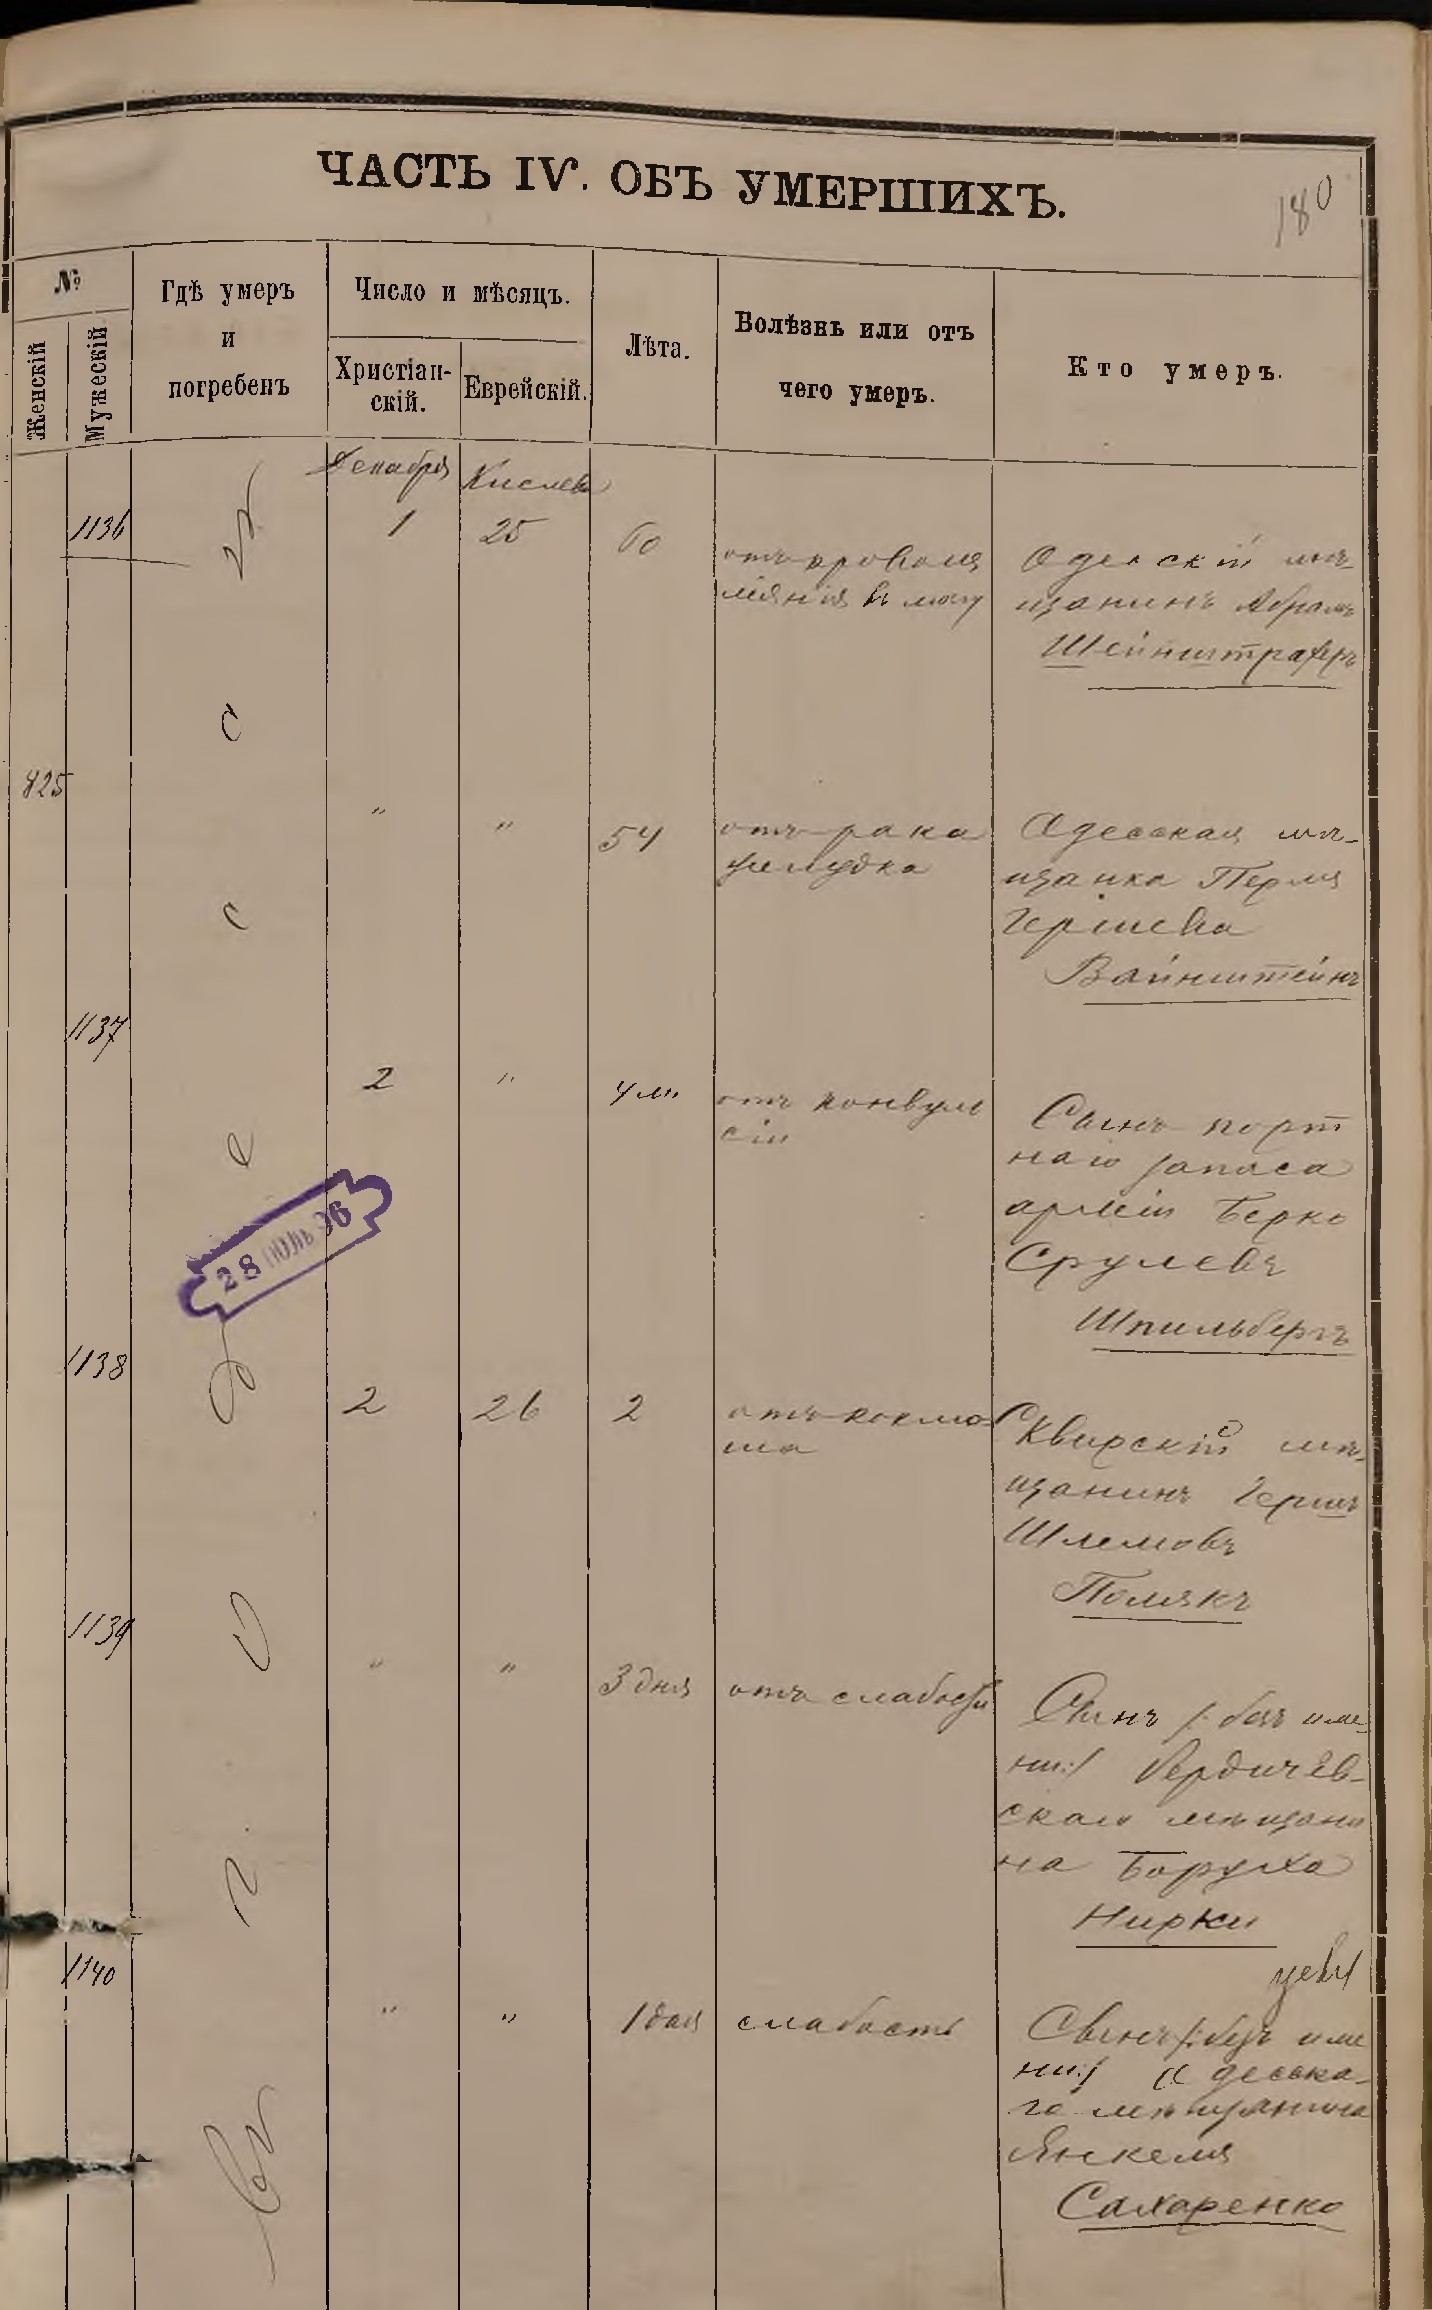 ЧАСТЬ IV. ОБЪ УМЕРШИХЪ.
180
№
Женскій
Мужескій
Гдѣ умеръ
и
погребенъ
Число и мѣсяцъ.
Христіан-
скій.
Еврейскій.
Лѣта.
Болѣзнь или отъ
чего умеръ.
Кто умеръ.
въ г. Одессѣ
Декабря
Кислева
1136
1
25
60
отъ кровоиз
ліянія въ мозгу
Одесскій мѣ-
щанинъ Абрамъ
Шейнштраферъ
825
"
"
54
отъ рака
желудка
Одесская мѣ-
щанка Перля
Гершева
Вайнштейнъ
1137
2
"
4 м.
отъ конвуль
сіи
Сынъ порт
наго запаса
арміи Берко
Срулевъ
Шпильбергъ
28 ІЮЛЬ 96
1138
2
26
2
отъ коклю
ша
Сквирскій мѣ-
щанинъ Гершъ
Шлемовъ
Полякъ
1139
"
"
3 дня
отъ слабости
Сынъ /: безъ име-
ни:/ Бердичев-
скаго мѣщани
на Боруха
Нирки
1140
"
"
1 дня
слабость
Сынъ /: безъ име
ни:/ Одесска-
го мѣщанина
Янкеля
Сахаренко